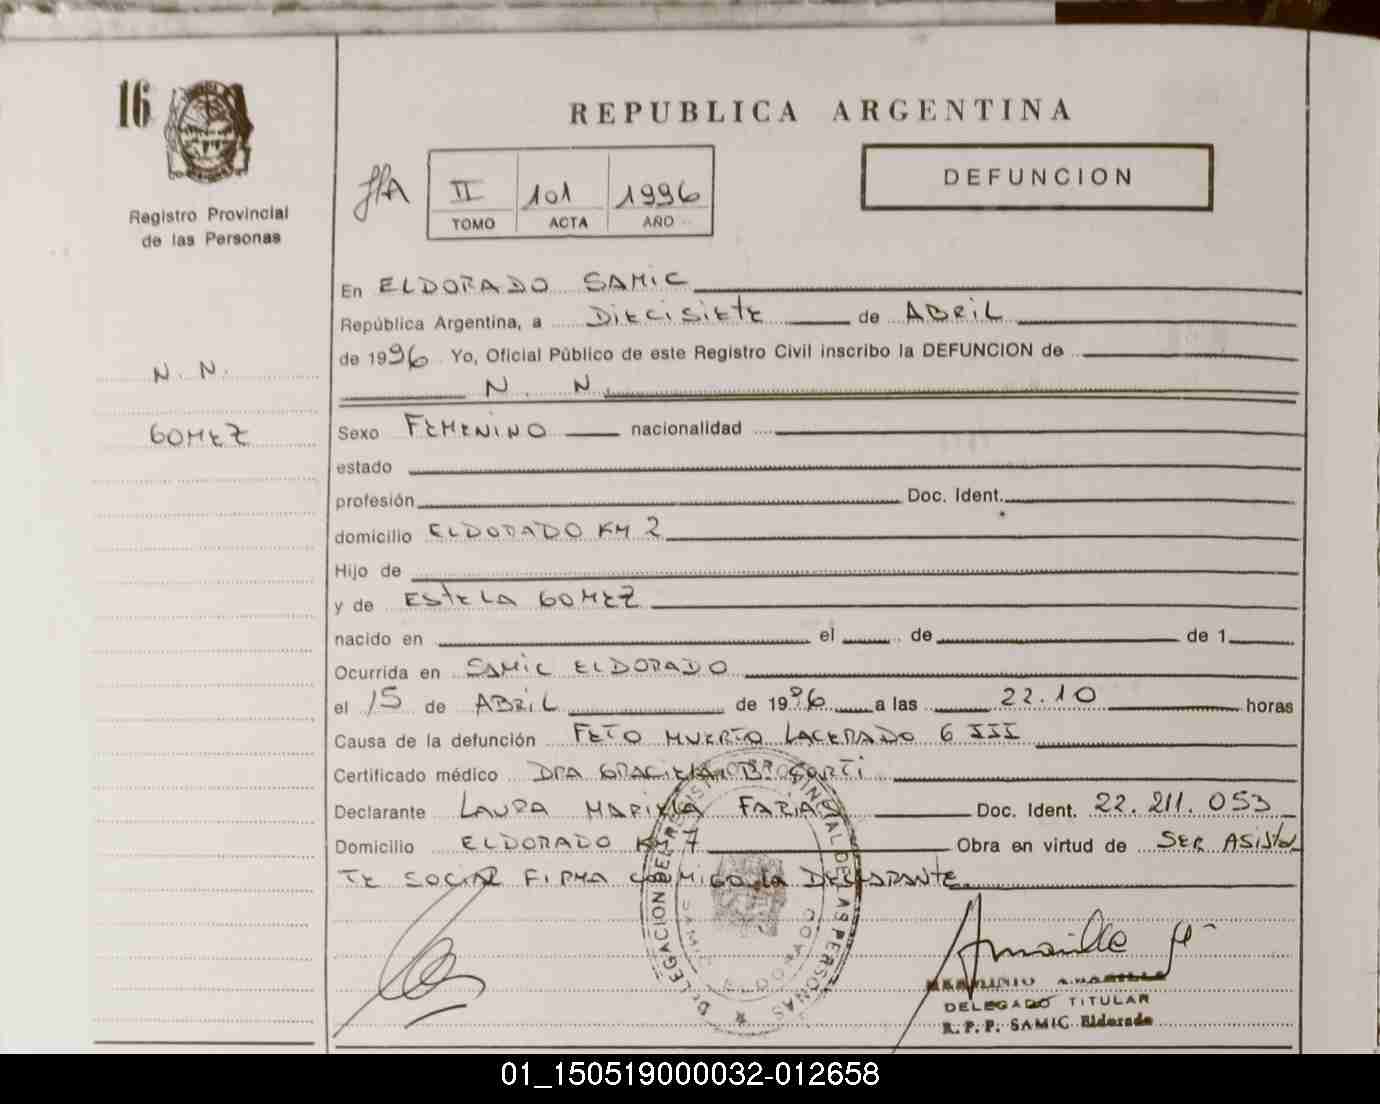 16
REPUBLICA ARGENTINA
DEFUNCION
II 101 1996
TOMO ACTA AÑO
Registro Provincial
de las Personas
N. N.
GOMEZ
En ELDORADO SAMIC
República Argentina, a DIECISIETE de ABRIL
de 1996 Yo, Oficial Público de este Registro Civil inscribo la DEFUNCION de
N. N.
Sexo FEMENINO nacionalidad
estado
profesión Doc. Ident.
domicilio ELDORADO KM 2
Hijo de
y de ESTELA GOMEZ
nacido en el de de 1
Ocurrida en SAMIC ELDORADO
el 15 de ABRIL de 1996 a las 22.10 horas
Causa de la defunción FETO MUERTO LACERADO G III
Certificado médico DRA GRACIELA
Declarante LAURA MARIELA FARIA Doc. Ident. 22.211.053
Domicilio ELDORADO KM 7 Obra en virtud de SER ASISTEN
TE SOCIAL FIRMA CONMIGO LA DECLARANTE.
DELEGACION DEL REGISTRO PROVINCIAL DE LAS PERSONAS
SAMIC ELDORADO
Amarilla H
HERMINIO AMARILLA
DELEGADO TITULAR
R. P. P. SAMIC Eldorado
01_150519000032-012658